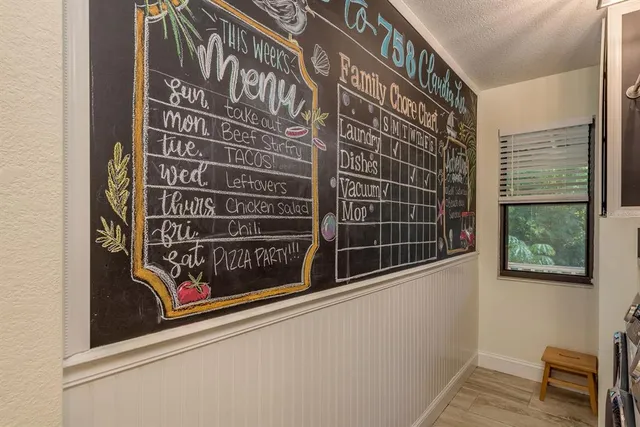 to 758 Claudia
THIS WEEKS
Menu
Sun. take out
mon. Beef Strfry
tue. TACOS!
wed. Leftovers
thurs Chicken salad
fri. Chili
sat. PIZZA PARTY!!!
Family Chore Chart
S M T W TH F S
Laundry
Dishes
Vacuum
Mop